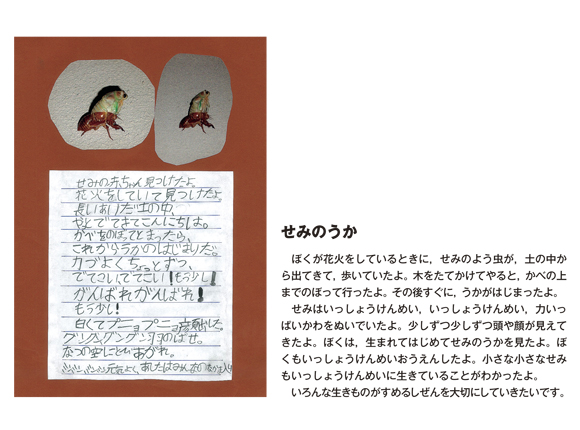 せみの赤ちゃん見つけたよ。
花火をしていて見つけたよ。
長いあいだ土の中、
やっとでてきてこんにちは。
かべをのぼってとまったら、
これからうかのはじまりだ。
力づよくちょっとずつ、
でてこいでてこい!もう少し!
がんばれがんばれ!
もう少し!
白くてプニョプニョ
グングングングン羽のばせ。
なつの空にとびあがれ。
元気よく、あしたはみんなの
せみのうか
ぼくが花火をしているときに，せみのよう虫が，土の中か
ら出てきて，歩いていたよ。木をたてかけてやると，かべの上
までのぼって行ったよ。その後すぐに，うかがはじまったよ。
せみはいっしょうけんめい，いっしょうけんめい，力いっ
ぱいかわをぬいでいたよ。少しずつ少しずつ頭や顔が見えて
きたよ。ぼくは，生まれてはじめてせみのうかを見たよ。ぼ
くもいっしょうけんめいおうえんしたよ。小さな小さなせみ
もいっしょうけんめいに生きていることがわかったよ。
いろんな生きものがすめるしぜんを大切にしていきたいです。